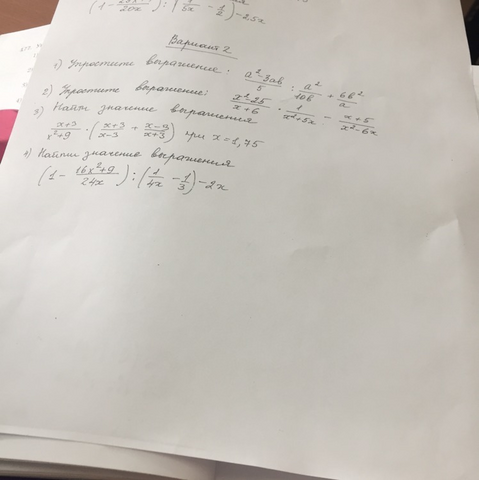 (1 - /20x) : (1/5x - 1/2) - 2,5x
Вариант 2
1) Упростите выражение: (a² - 3ab)/5 : a²/10b + 6b²/a
2) Упростите выражение: (x² - 25)/(x + 6) · 1/(x² + 5x) - (x + 5)/(x² - 6x)
3) Найти значение выражения
(x + 3)/(x² + 9) · ((x + 3)/(x - 3) + (x - 9)/(x + 3)) при x = 1,75
4) Найти значение выражения
(1 - (16x² + 9)/24x) : (1/4x - 1/3) - 2x